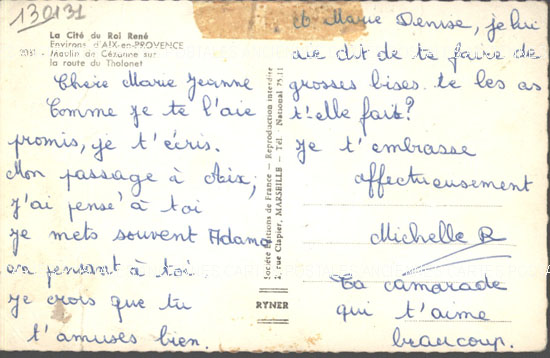 130131
La Cité du Roi René
Environs d'AIX-en-PROVENCE
2031 - Moulin de Cézanne sur
la route du Tholonet
Chère Marie Jeanne
Comme je te l'aie
promis, je t'écris.
Mon passage à Aix,
j'ai pensé à toi
je mets souvent Adamo
en pensant à toi
je crois que tu
t'amuses bien.
Société Editions de France - Reproduction interdite
2, rue Clapier, MARSEILLE - Tél. National 75-11
RYNER
et Marie Denise, je lui
aie dit de te faire de
grosses bises. te les as
t'elle fait?
Je t'embrasse
affectueusement
Michelle R
Ta camarade
qui t'aime
beaucoup.